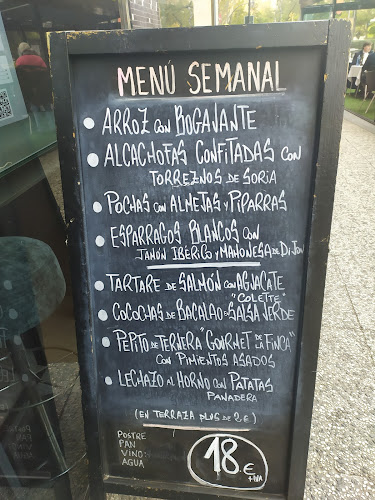 MENÚ SEMANAL
• ARROZ CON BOGAVANTE
• ALCACHOFAS CONFITADAS CON
TORREZNOS DE SORIA
• POCHAS CON ALMEJAS Y PIPARRAS
• ESPARRAGOS BLANCOS CON
JAMÓN IBÉRICO Y MAHONESA DE DIJON
• TARTARE DE SALMÓN CON AGUACATE
"COLETTE"
• COCOCHAS DE BACALAO EN SALSA VERDE
• PEPITO DE TERNERA "GOURMET DE LA FINCA"
CON PIMIENTOS ASADOS
• LECHAZO AL HORNO CON PATATAS
PANADERA
(EN TERRAZA PLUS DE 2€)
POSTRE
PAN
VINO
AGUA
18.€
+IVA